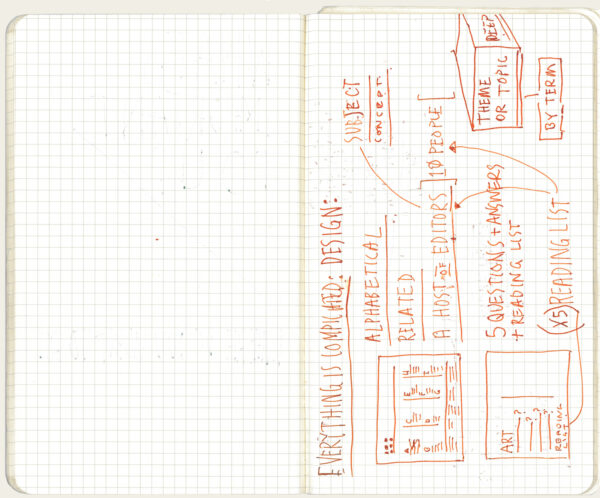 EVERYTHING IS COMPLICATED: DESIGN:
ALPHABETICAL
SUBJECT
CONCEPT
RELATED
A HOST OF EDITORS [10 PEOPLE]
5 QUESTIONS + ANSWERS
+ READING LIST
(X5) READING LIST
THEME
OR TOPIC
DEEP
BY TERM
A
C
E
H
D
F
G
ART
?
?
?
READING
LIST